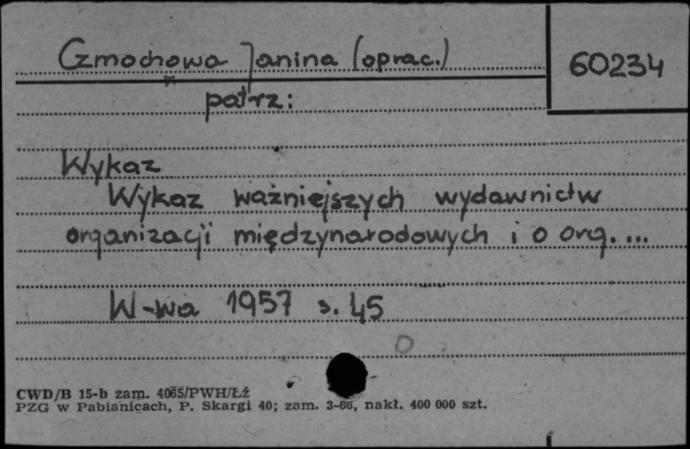 Czmochowa Janina (oprac.)
60234
patrz:
Wykaz
Wykaz ważniejszych wydawnictw
organizacji międzynarodowych i o org. ...
W-wa 1957 s. 45
CWD/B 15-b zam. 4065/PWH/Łź
PZG w Pabianicach, P. Skargi 40; zam. 3-66, nakł. 400 000 szt.